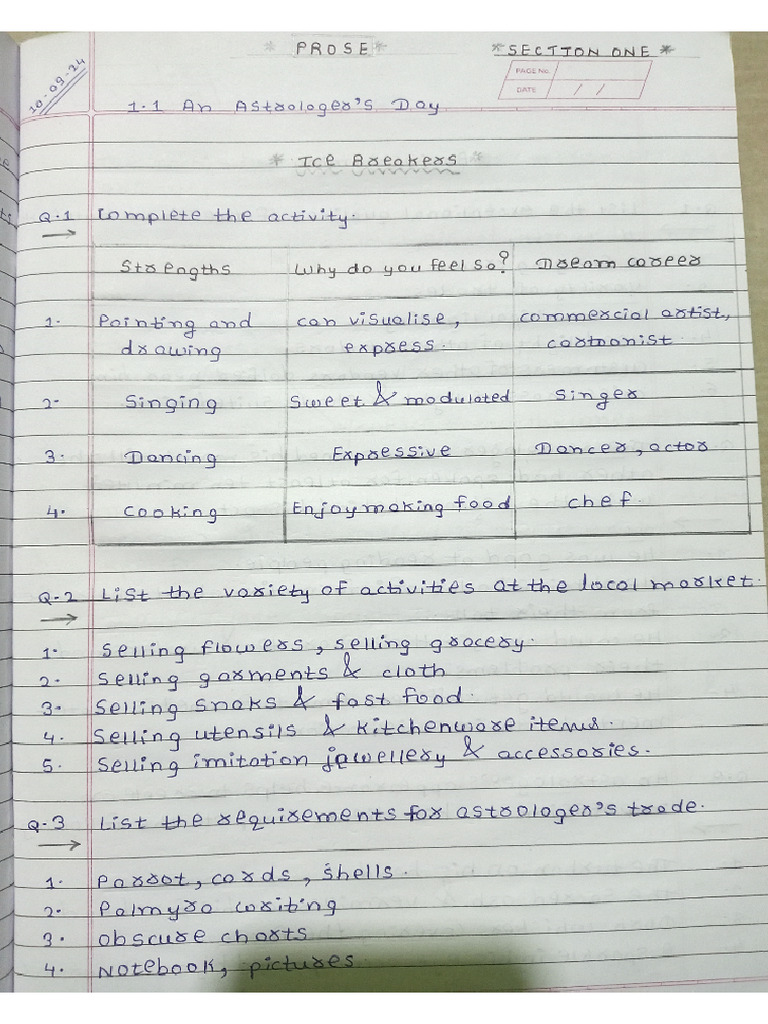 * PROSE *
* SECTION ONE *
PAGE NO.
DATE / /
10-09-24
1.1 An Astrologer's Day
* Ice Breakers *
Q.1 Complete the activity.
Strengths Why do you feel so? Dream career
1. Painting and can visualise, commercial artist,
drawing express. cartoonist.
2. Singing Sweet & modulated Singer
3. Dancing Expressive Dancer, actor
4. Cooking Enjoy making food chef.
Q.2 List the variety of activities at the local market.
1. Selling flowers, selling grocery.
2. Selling garments & cloth
3. Selling snaks & fast food.
4. Selling utensils & kitchenware items.
5. Selling imitation jewellery & accessories.
Q.3 List the requirements for astrologer's trade.
1. Parrot, cards, shells.
2. Palmyra writing
3. obscure charts
4. Notebook, pictures.